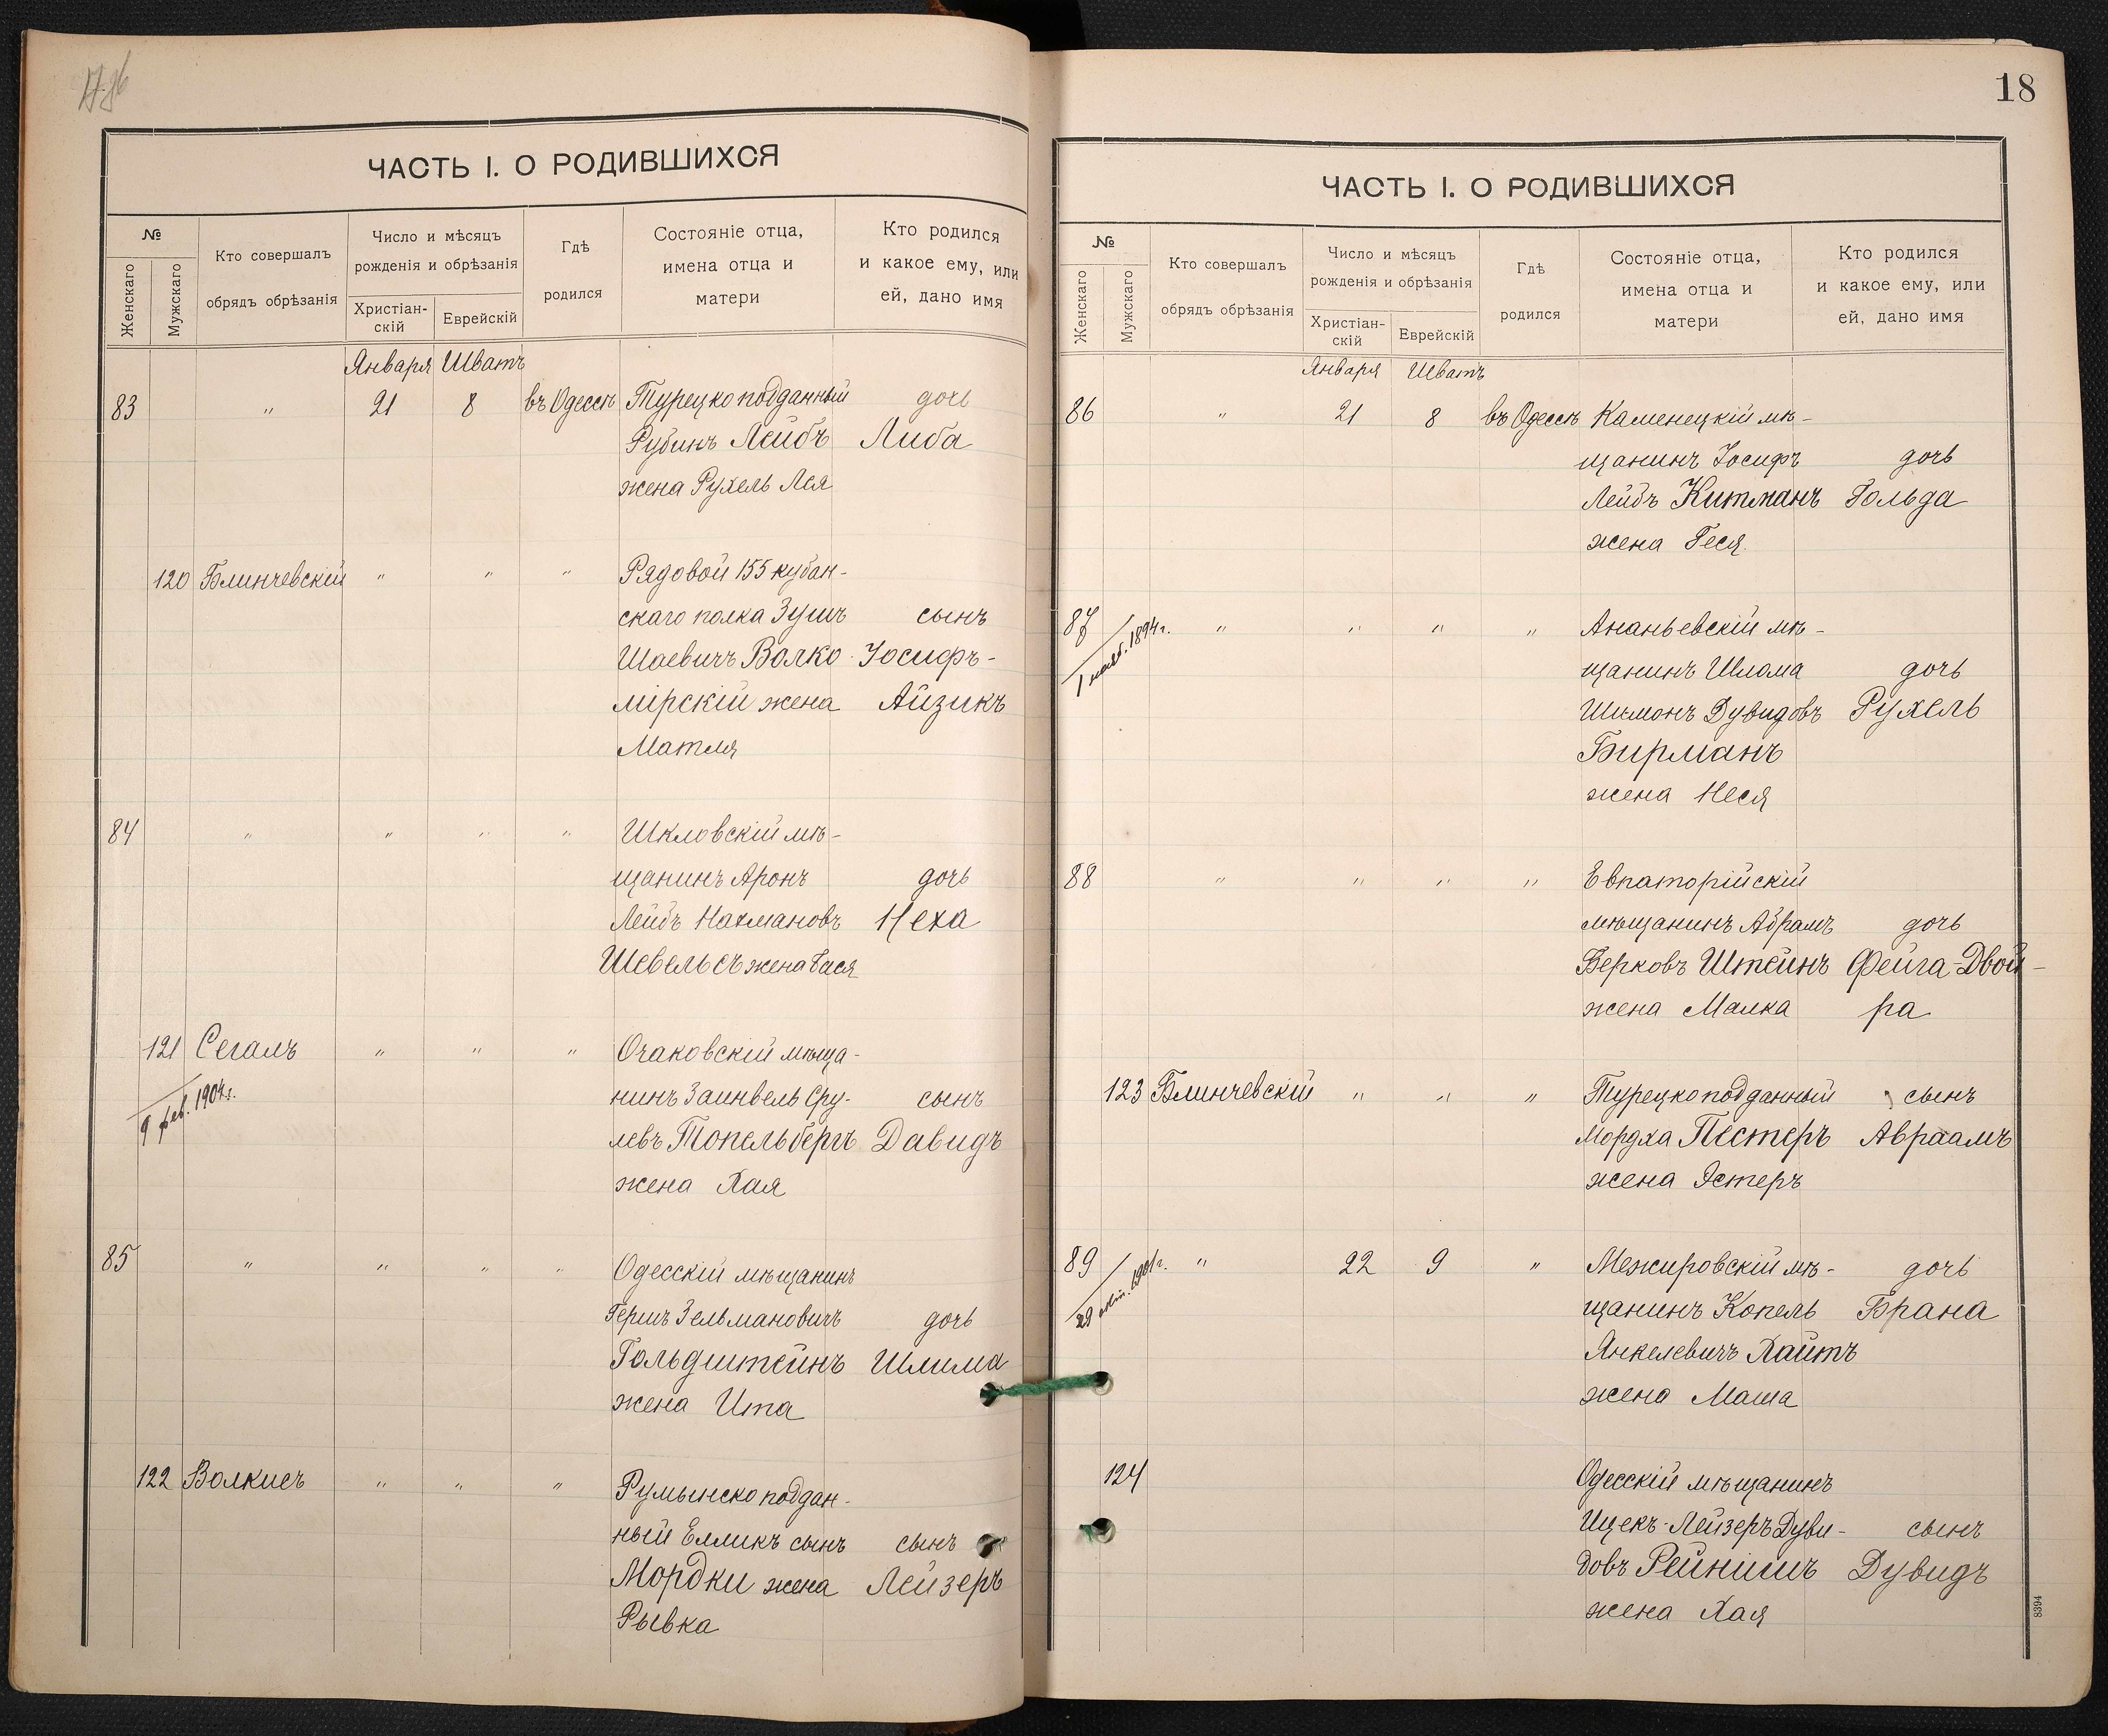 ЧАСТЬ I. О РОДИВШИХСЯ
№
Женскаго
Мужскаго
Кто совершалъ
обрядъ обрѣзанія
Число и мѣсяцъ
рожденія и обрѣзанія
Христіан-
скій
Еврейскій
Гдѣ
родился
Состояніе отца,
имена отца и
матери
Кто родился
и какое ему, или
ей, дано имя
Января Шватъ
83 " 21 8 въ Одессѣ Турецкоподданный дочь
Рубинъ Лейбъ Либа
жена Рухель Лея
120 Блинчевскій " " " Рядовой 155 кубан-
скаго полка Зушъ сынъ
Шаевичъ Волко Іосифъ-
мірскій жена Айзикъ
Матля
84 " " " " Шкловскій мѣ-
щанинъ Аронъ дочь
Лейбъ Нахмановъ Неха
Шевельсъ жена Бася
121 Сегалъ " " " Очаковскій мѣща-
9 фев. 1904г. нинъ Заинвель Сру- сынъ
левъ Топельбергъ Давидъ
жена Хая
85 " " " " Одесскій мѣщанинъ
Гершъ Зельмановичъ дочь
Гольдштейнъ Шлима
жена Ита
122 Волкисъ " " " Румынскоподдан-
ный Елликъ сынъ сынъ
Мордки жена Лейзеръ
Рывка
18
ЧАСТЬ I. О РОДИВШИХСЯ
№
Женскаго
Мужскаго
Кто совершалъ
обрядъ обрѣзанія
Число и мѣсяцъ
рожденія и обрѣзанія
Христіан-
скій
Еврейскій
Гдѣ
родился
Состояніе отца,
имена отца и
матери
Кто родился
и какое ему, или
ей, дано имя
Января Шватъ
86 " 21 8 въ Одессѣ Каменецкій мѣ-
щанинъ Іосифъ дочь
Лейбъ Китманъ Гольда
жена Геся
87 " " " " Ананьевскій мѣ-
1 1894г. щанинъ Шлома дочь
Шимонъ Дувидовъ Рухель
Бирманъ
жена Неся
88 " " " " Евпаторійскій
мѣщанинъ Абрамъ дочь
Берковъ Штейнъ Фейга-Двой-
жена Малка ра
123 Блинчевскій " " " Турецкоподданный сынъ
Мордха Пестеръ Авраамъ
жена Эстеръ
89 " 22 9 " Межировскій мѣ- дочь
29 1901г. щанинъ Копель Брана
Янкелевичъ Хаитъ
жена Маша
124 Одесскій мѣщанинъ
Ицекъ-Лейзеръ Дуви- сынъ
довъ Рейнишъ Дувидъ
жена Хая
8394